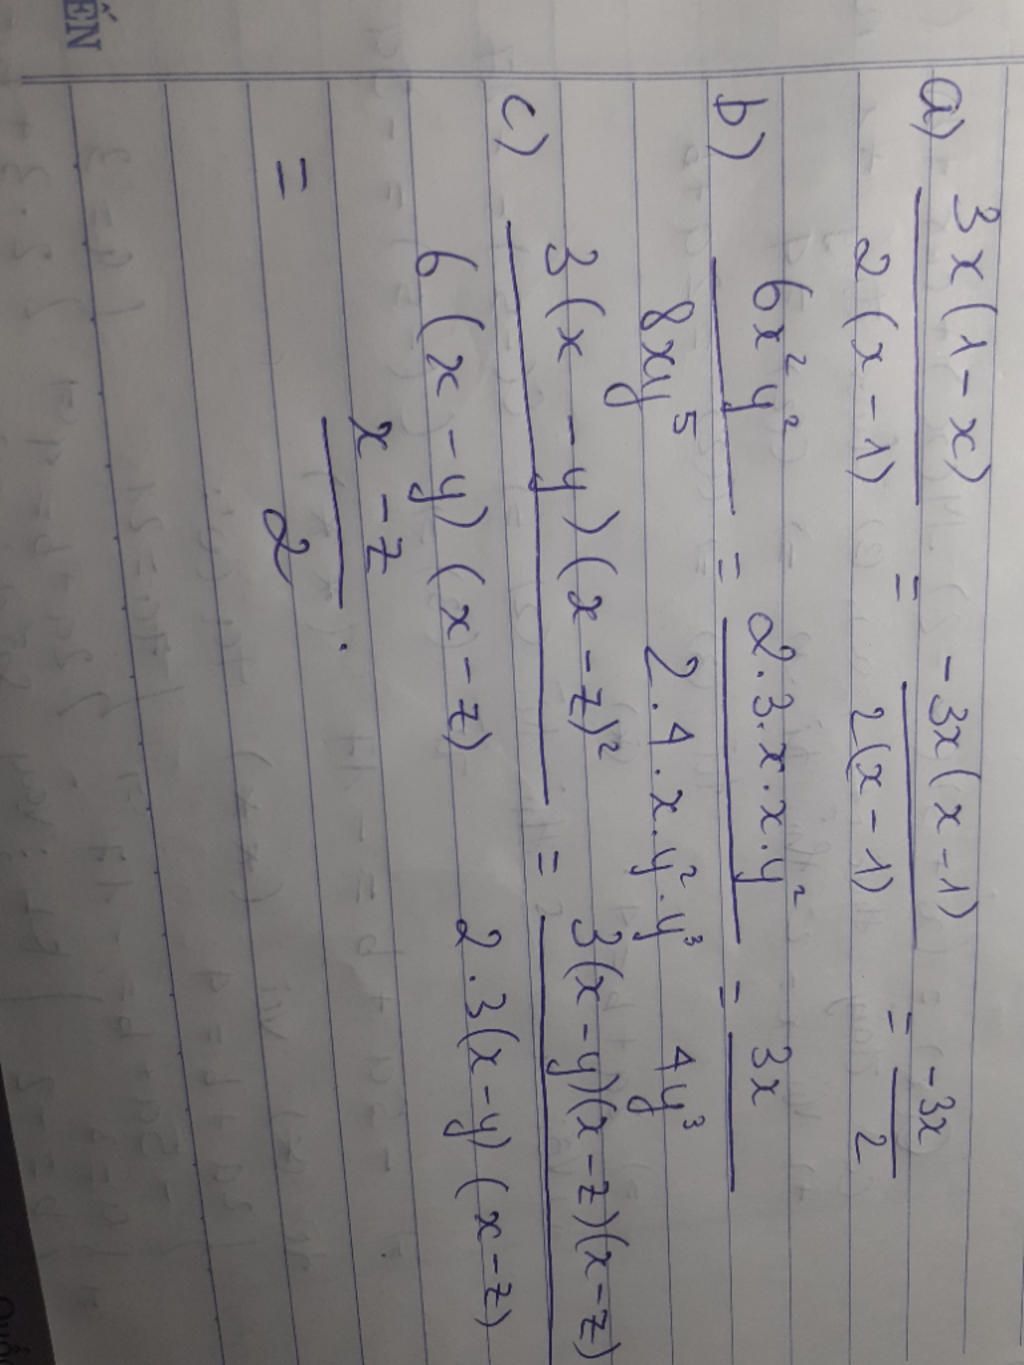 ẾN
a) 3x(1-x) / 2(x-1) = -3x(x-1) / 2(x-1) = -3x / 2
b) 6x²y² / 8xy⁵ = 2.3.x.x.y² / 2.4.x.y².y³ = 3x / 4y³
c) 3(x-y)(x-z)² / 6(x-y)(x-z) = 3(x-y)(x-z)(x-z) / 2.3(x-y)(x-z)
= x-z / 2.